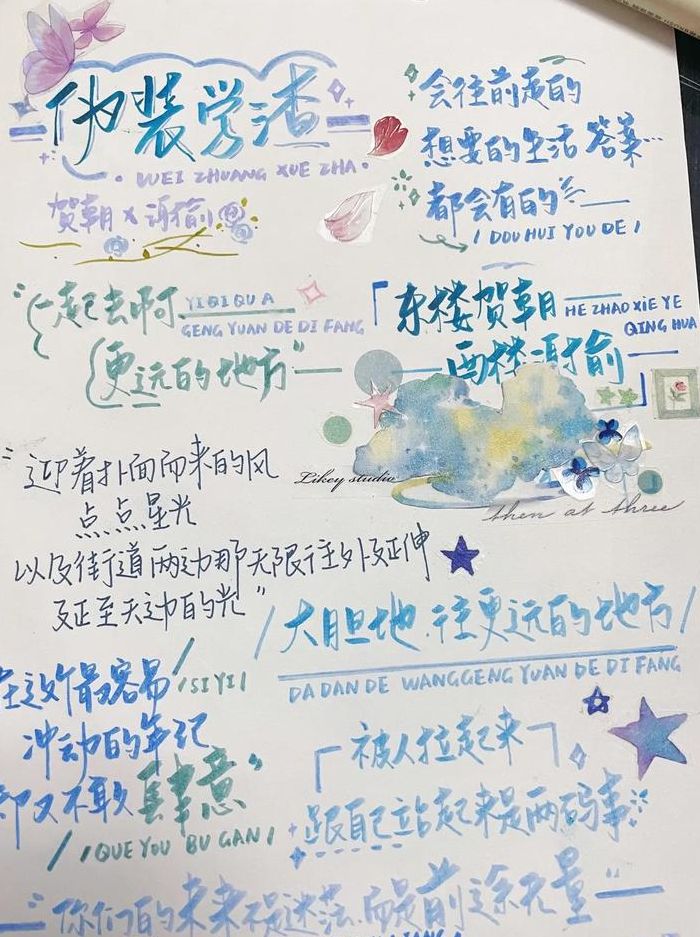 伪装学渣
WEI ZHUANG XUE ZHA
贺朝×谢俞
会往前走的
想要的生活 答案…
都会有的
/ DOU HUI YOU DE /
"一起去啊
YI QI QU A
GENG YUAN DE DI FANG
更远的地方"
「东楼贺朝
HE ZHAO XIE YE
QING HUA
西楼谢俞」
"迎着扑面而来的风
点点星光
以及街道两边那无限往外延伸
延至天边的光"
Likey studio
then at three
/大胆地.往更远的地方/
DA DAN DE WANG GENG YUAN DE DI FANG
在这个最容易
/SI YI/
冲动的年纪
却又不敢肆意"
/ /QUE YOU BU GAN/
「被人拉起来」
跟自己站起来是两码事
"你们的未来不是迷茫.而是前途无量"